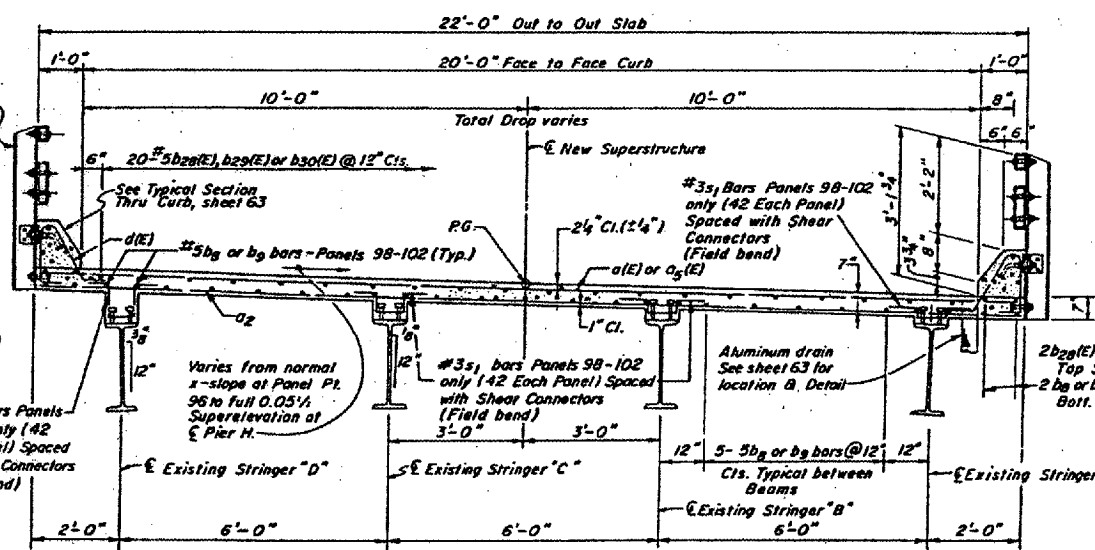 22'-0" Out to Out Slab
1'-0"
20'-0" Face to Face Curb
1'-0"
10'-0"
10'-0"
8"
Total Drop varies
6" 6"
6"
20-#5b28(E), b29(E) or b30(E) @ 12" Cts.
℄ New Superstructure
See Typical Section
Thru Curb, sheet 63
#3s1 Bars Panels 98-102
only (42 Each Panel)
Spaced with Shear
Connectors
(Field bend)
3'-1 3/4"
2'-2"
8"
3 3/4"
d(E)
#5b8 or b9 bars-Panels 98-102 (Typ.)
P.G
2 1/4" Cl. (±1/4")
a(E) or a5(E)
7"
7"
a2
1" Cl.
3/8"
12"
1/8"
12"
Varies from normal
x-slope at Panel Pt.
96 to full 0.05'/1
Superelevation at
℄ Pier H.
#3s1 bars Panels 98-102
only (42 Each Panel) Spaced
with Shear Connectors
(Field bend)
Aluminum drain
See sheet 63 for
location & Detail
2b28(E)
Top
2 b8 or
Bott.
Panels
(42
Spaced
Connectors
3'-0"
3'-0"
12"
5-5b8 or b9 bars @ 12"
12"
Cts. Typical between
Beams
℄ Existing Stringer "D"
℄ Existing Stringer "C"
℄ Existing Stringer "B"
℄ Existing Stringer
2'-0"
6'-0"
6'-0"
6'-0"
2'-0"